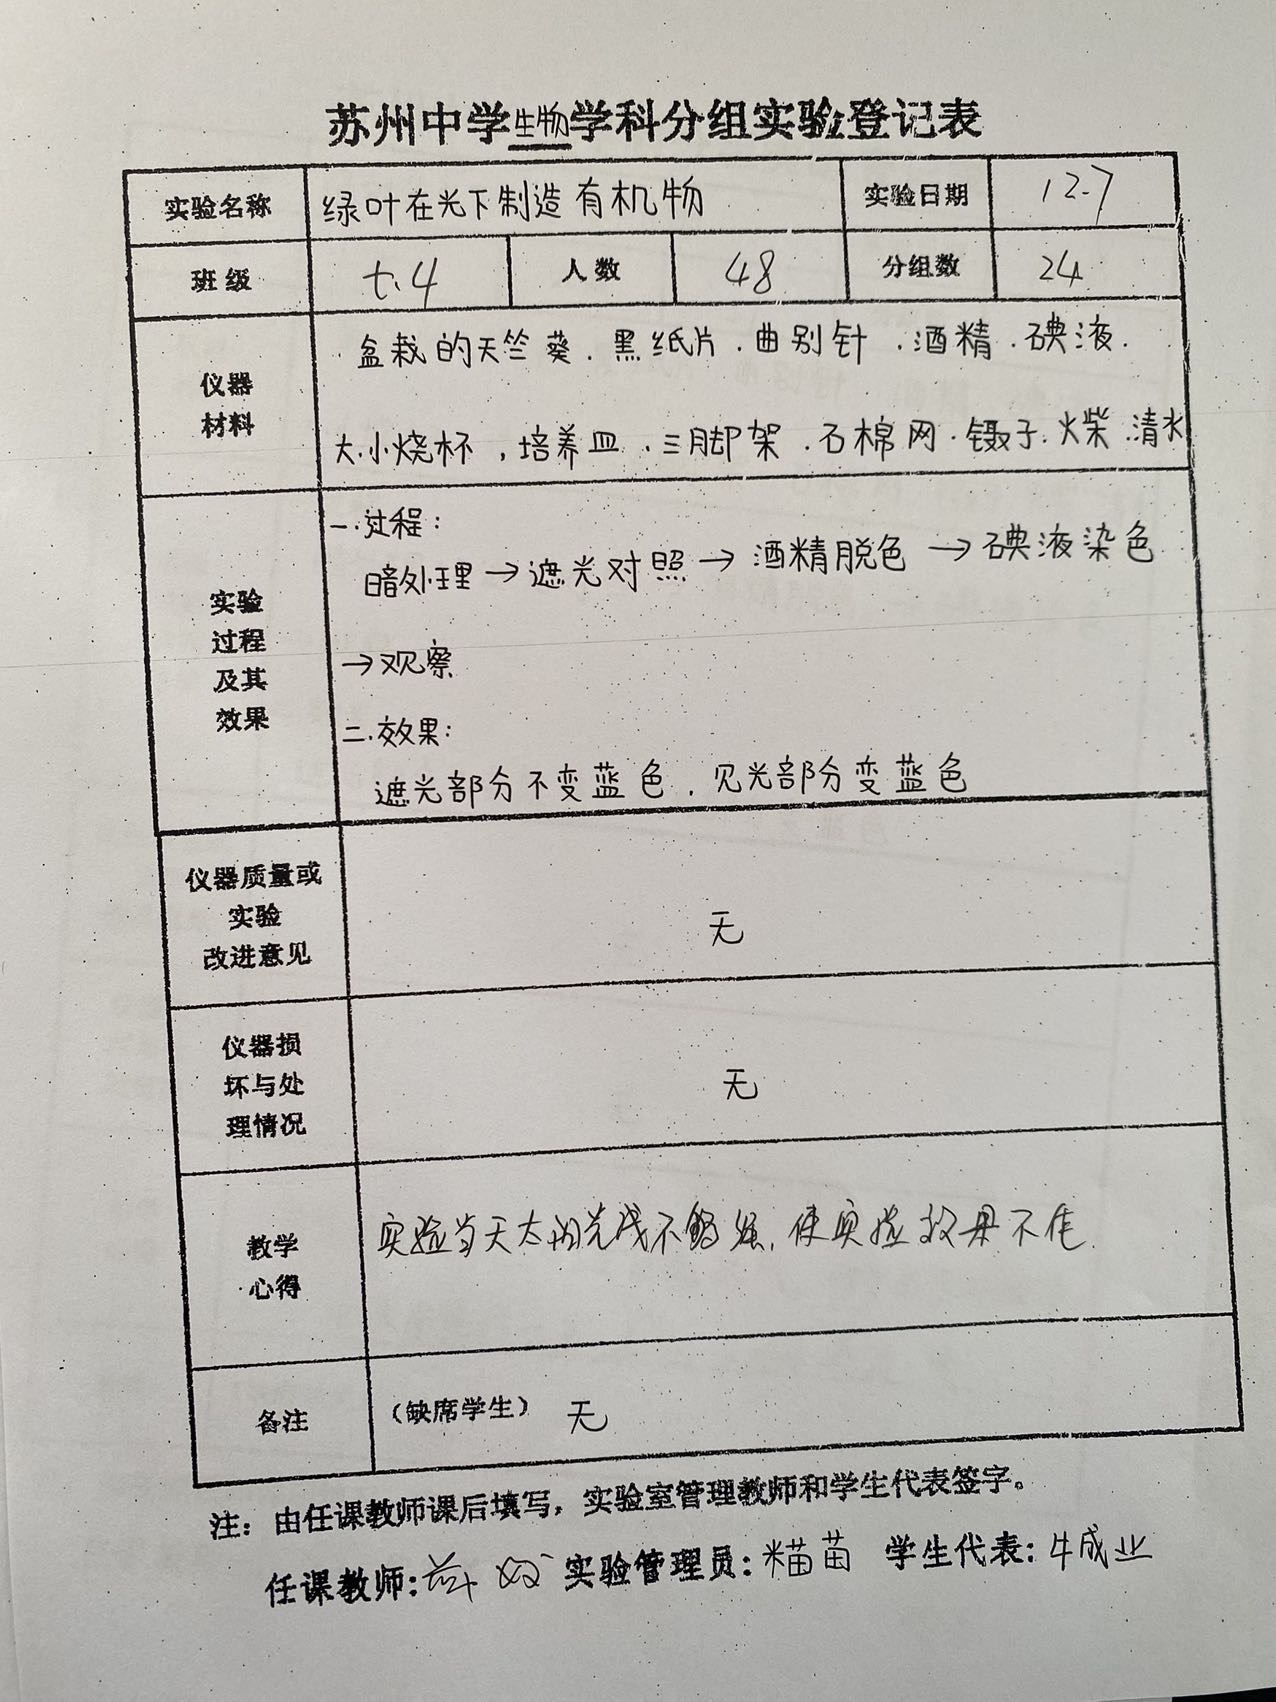 苏州中学生物学科分组实验登记表
实验名称 绿叶在光下制造有机物 实验日期 12.7
班级 七.4 人数 48 分组数 24
仪器
材料
盆栽的天竺葵.黑纸片.曲别针.酒精.碘液.
大.小烧杯,培养皿.三脚架.石棉网.镊子.火柴.清水
实验
过程
及其
效果
一.过程:
暗处理→遮光对照→酒精脱色→碘液染色
→观察
二.效果:
遮光部分不变蓝色,见光部分变蓝色
仪器质量或
实验
改进意见
无
仪器损
坏与处
理情况
无
教学
心得
实验当天太阳光线不够强,使实验效果不佳
备注 (缺席学生) 无
注:由任课教师课后填写,实验室管理教师和学生代表签字。
任课教师: 实验管理员: 苗 学生代表:牛成业